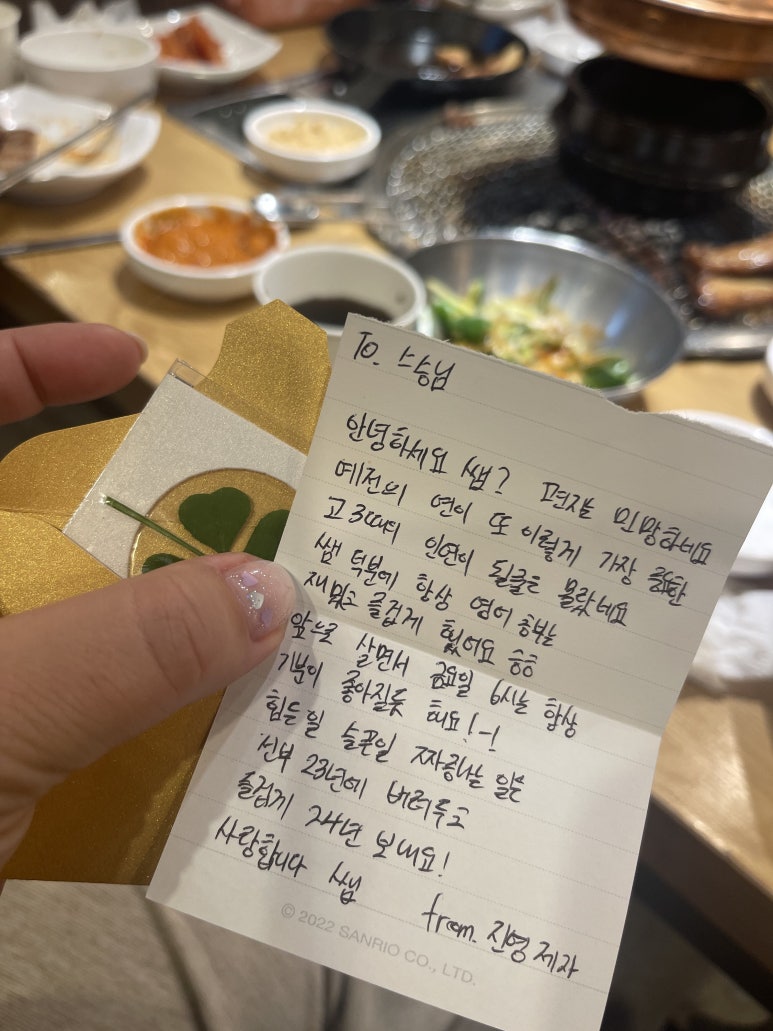 To. 스승님
안녕하세요 쌤? 편지는 민망하네요
예전의 연이 또 이렇게 가장 중요한
고3때의 인연이 될줄은 몰랐네요
쌤 덕분에 항상 영어 공부는
재밌고 즐겁게 했어요 ㅎㅎ
앞으로 살면서 금요일 6시는 항상
기분이 좋아질듯 해요!-!
힘든일 슬픈일 짜증나는 일은
전부 23년에 버려두고
즐겁게 24년 보내요!
사랑합니다 쌤
from. 진영 제자
© 2022 SANRIO CO., LTD.